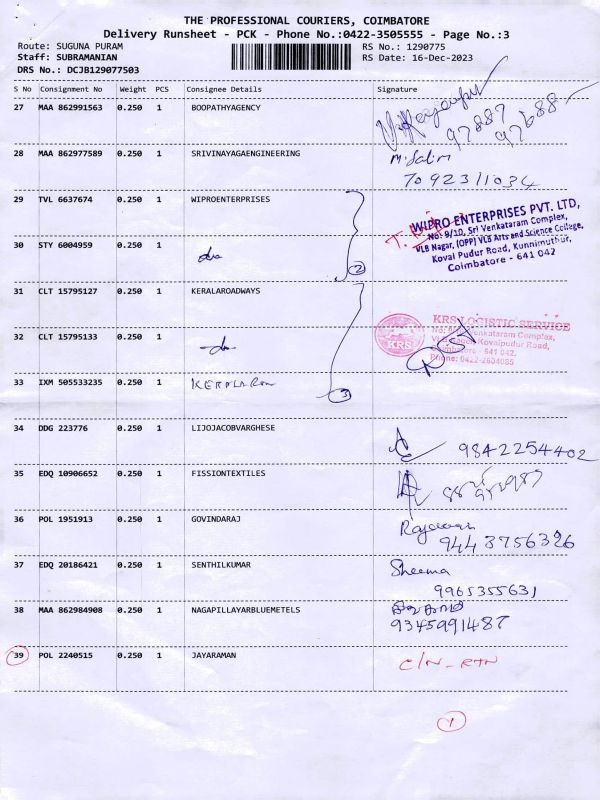 THE PROFESSIONAL COURIERS, COIMBATORE
Delivery Runsheet - PCK - Phone No.:0422-3505555 - Page No.:3
Route: SUGUNA PURAM
RS No.: 1290775
Staff: SUBRAMANIAN
RS Date: 16-Dec-2023
DRS No.: DCJB129077503
S No Consignment No Weight PCS Consignee Details Signature
27 MAA 862991563 0.250 1 BOOPATHYAGENCY
97887 97688
28 MAA 862977589 0.250 1 SRIVINAYAGAENGINEERING M. Salim
7092311034
29 TVL 6637674 0.250 1 WIPROENTERPRISES
WIPRO ENTERPRISES PVT. LTD,
No: 9/10, Sri Venkataram Complex,
VLB Nagar, (OPP) VLB Arts and Science College,
Koval Pudur Road, Kunnimuthur,
Coimbatore - 641 042
30 STY 6004959 0.250 1 do
2
31 CLT 15795127 0.250 1 KERALAROADWAYS
KRS LOGISTIC SERVICE
Venkataram Complex,
Kovaipudur Road,
Coimbatore - 641 042.
Phone: 0422-2604085
KRS
32 CLT 15795133 0.250 1 -do-
33 IXM 505533235 0.250 1 KERALA
3
34 DDG 223776 0.250 1 LIJOJACOBVARGHESE 9842254402
35 EDQ 10906652 0.250 1 FISSIONTEXTILES
36 POL 1951913 0.250 1 GOVINDARAJ
9443756326
37 EDQ 20186421 0.250 1 SENTHILKUMAR Sheema
9965355631
38 MAA 862984908 0.250 1 NAGAPILLAYARBLUEMETELS
9345991487
39 POL 2240515 0.250 1 JAYARAMAN C/N-RTN